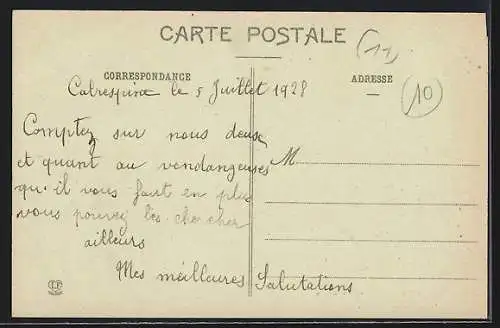 CARTE POSTALE
(11)
CORRESPONDANCE
ADRESSE
(10)
Cabrespine le 5 Juillet 1928
Comptez sur nous deux
et quant au vendangeuses
M
qu'il vous faut en plus
vous pouvez les chercher
ailleurs
Mes meillaures Salutations